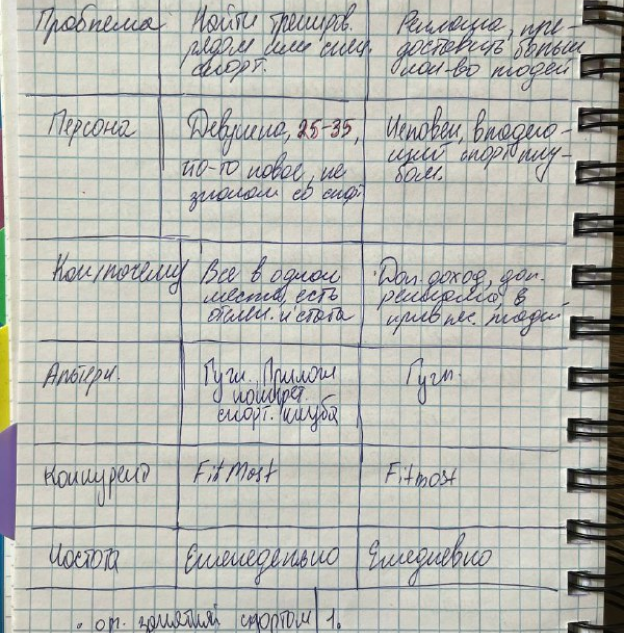 Проблема
Найти трениров.
рядом или
спорт.
Реклама, пре-
доставить больш
кол-во людей
Персона
Девушка, 25-35,
что-то новое, не
знаком со спорт
Человек, владею-
щий спорт клу-
бом.
Кон/почему
Все в одном
месте, есть
и стата
Доп. доход, доп.
реклама, в
людей
Альтерн.
Гугл. Прилож
конкрет.
спорт. клуба
Гугл.
Конкурент
FitMost
Fitmost
Частота
Еженедельно
Ежедневно
· оп. занятий спортом 1.